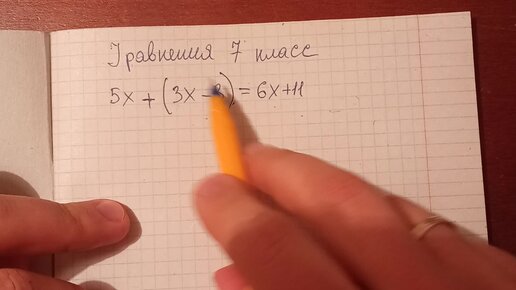 Уравнения 7 класс
5x + (3x - 3) = 6x + 11